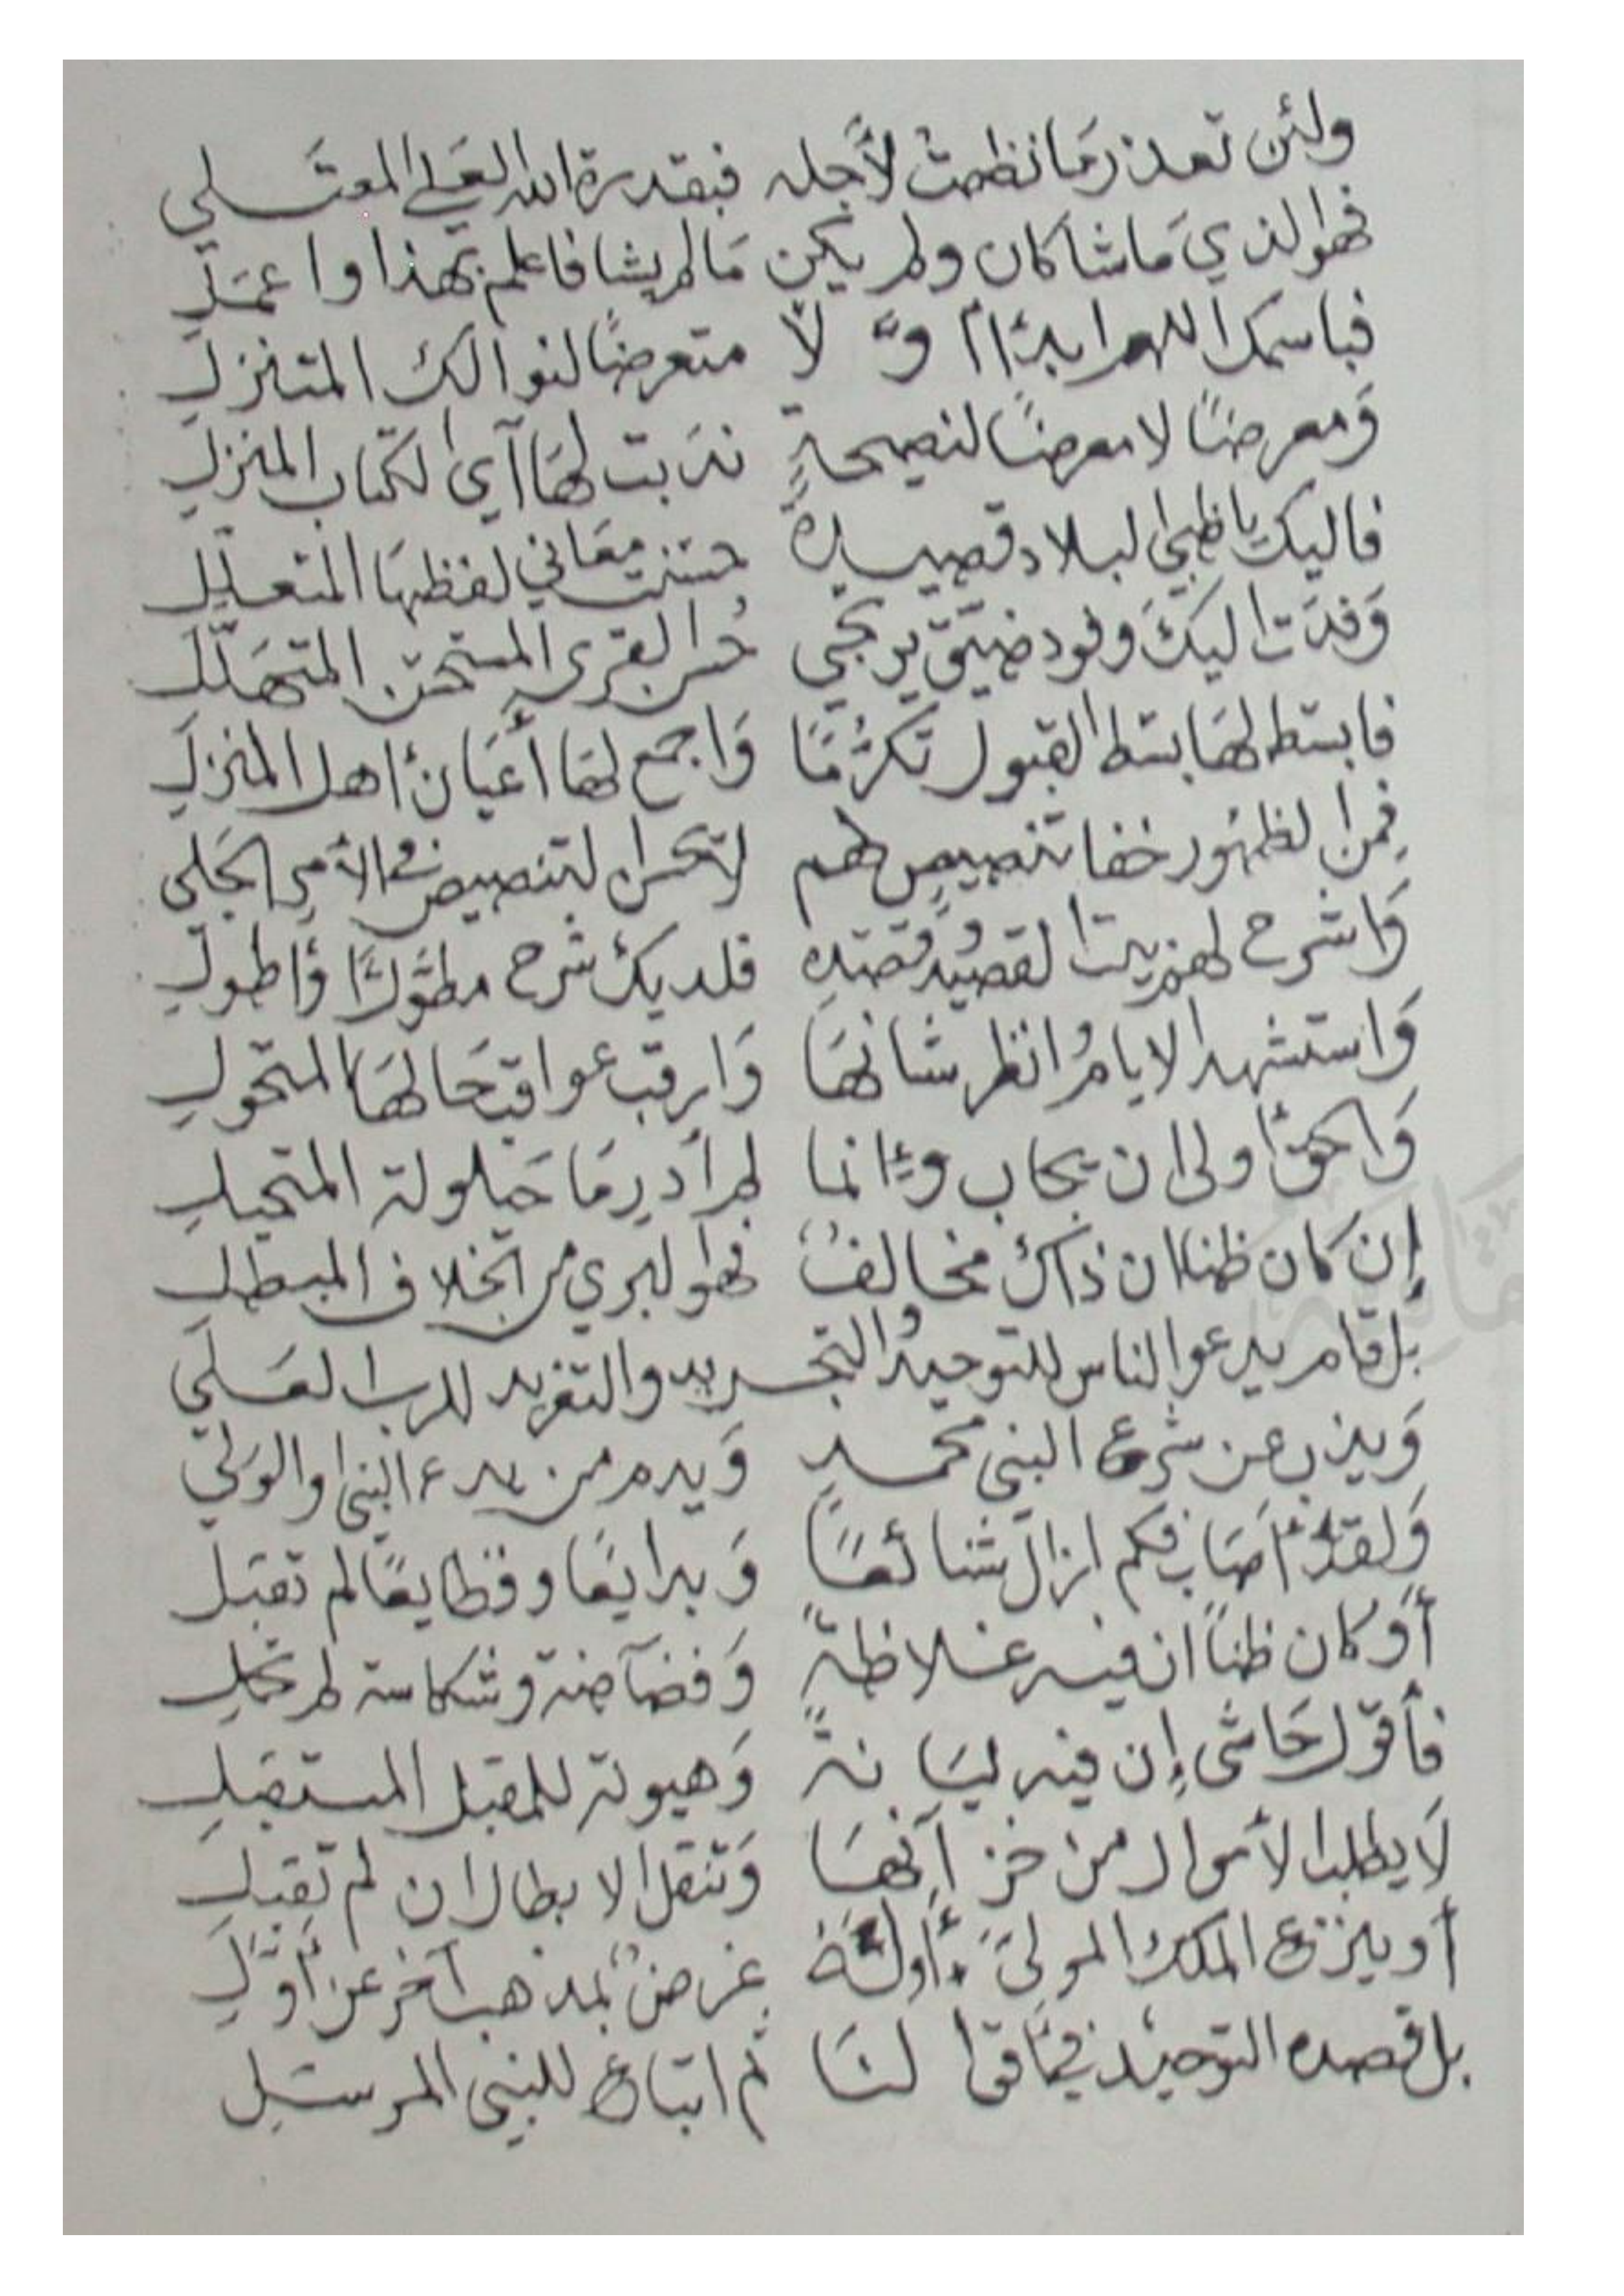 ولئن تعذر مَا نظمتُ لأجله فبقدرة الله العَلي المعتَلي
فهو الذي مَا شا كان ولم يكن مَا لم يشا فاعلم بهذا واعمَلِ
فباسمك اللهم ابدًا أوَّلًا متعرضًا لنوالك المتنزلِ
وَمعرضًا لا معرضًا لنصيحةٍ ندَبت لهَا آي الكتاب المنزلِ
فاليك يا ظبي البلاد قصيدةً حسَنت معَاني لفظهَا المتعلّلِ
وَفدَت اليكَ وفود ضيَقٍ يرتجي حُسن القرى المستحقِ المتهَلّلِ
فابسَط لهَا بسَط القبول تكرُّمًا وَاجمع لهَا أعيَان اهل المنزلِ
فِمن الظهُور خفا تنصيصٍ لهم لا تحسن التنصيص في الأمر الجَلي
وَاشرح لهم بيت القصيد وَقصّته فلديك شرح مطوَّلًا وَأطولِ
وَاستشهد الايام وُانظر شانهَا وَارقب عواقب حَالهَا المتحولِ
وَالحق أولى ان يجاب وإنما لم أدرِ مَا حَيلولة المتحيلِ
إن كان ظنا ان ذاك مخالفٌ فهو البري من الخلاف المبطلِ
بل قام يدعو الناس للتوحيد وُالتجريد والتفريد للرب العَلي
وَيذب عن شرع النبي محمدٍ وَيدم من يدع النبي او الوَلي
وَلقد أصَاب فكم ازال شنائعًا وَبدايعًا وفظايعًا لم تقبَل
أو كان ظناً ان فيه غلاظةً وَفضآضة وشكاسة لم تجملِ
فأقول حَاشى إن فيه ليَانةً وَهيونة للمقبل المستقبَلِ
لَا يطلب الأموال من خزآنهَا وَتنقل الابطال ان لم تقبَلِ
أو ينزع الملك المولىَّ أوله غرضٌ بمذهب آخر عن أوّلِ
بل قصده التوحيد فيمَا قالَنَا ثم اتباع للنبي المرسَلِ